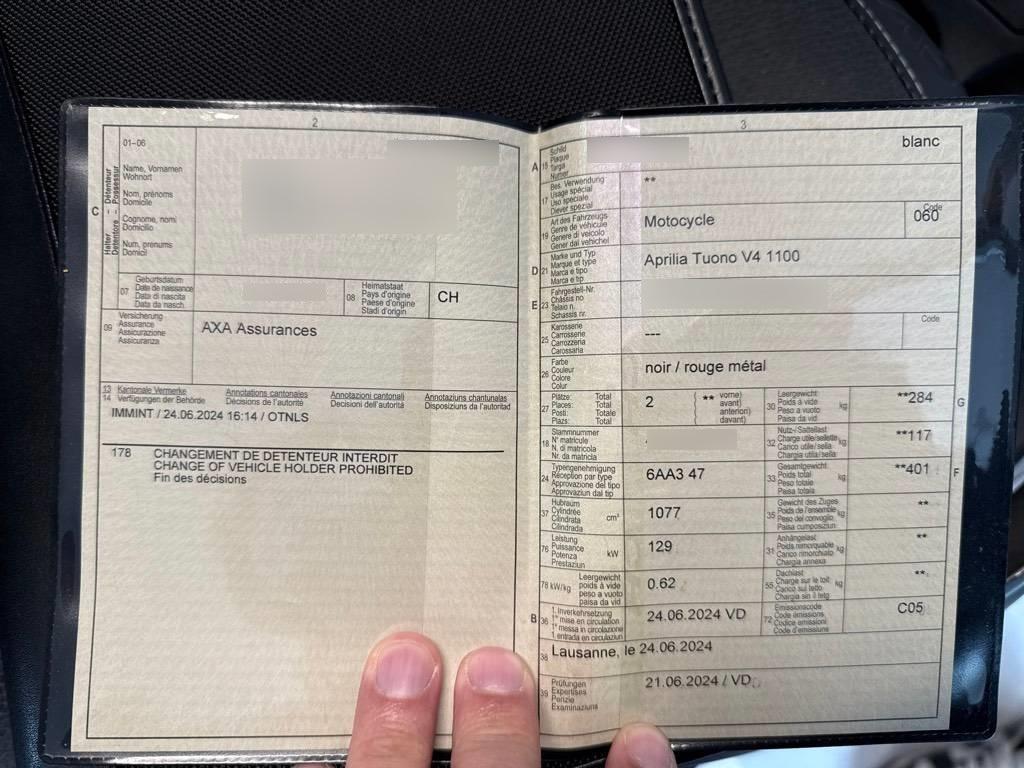 2
01-06
C
Halter – Détenteur
Detentore – Possessur
Name, Vornamen
Wohnort
Nom, prénoms
Domicile
Cognome, nomi
Domicilio
Num, prenums
Domicil
07
Geburtsdatum
Date de naissance
Data di nascita
Data da nasch.
08
Heimatstaat
Pays d'origine
Paese d'origine
Stadi d'origin
CH
09
Versicherung
Assurance
Assicurazione
Assicuranza
AXA Assurances
13
14
Kantonale Vermerke
Verfügungen der Behörde
Annotations cantonales
Décisions de l'autorité
Annotazioni cantonali
Decisioni dell'autorità
Annotaziuns chantunalas
Disposiziuns da l'autoritad
IMMINT / 24.06.2024 16:14 / OTNLS
178 CHANGEMENT DE DETENTEUR INTERDIT
CHANGE OF VEHICLE HOLDER PROHIBITED
Fin des décisions
3
A
Schild
Plaque
Targa
Numer
blanc
17
Bes. Verwendung
Usage spécial
Uso speciale
Diever spezial
**
19
Art des Fahrzeugs
Genre de véhicule
Genere di veicolo
Gener dal vehichel
Motocycle
Code
060
D 21
Marke und Typ
Marque et type
Marca e tipo
Marca e tip
Aprilia Tuono V4 1100
E 23
Fahrgestell-Nr.
Châssis no
Telaio n.
Schassis nr.
25
Karosserie
Carrosserie
Carrozzeria
Carossaria
---
Code
26
Farbe
Couleur
Colore
Colur
noir / rouge métal
27
Plätze: Total
Places: Total
Posti: Totale
Plazs: Total
2
( ** vorne)
avant)
anteriori)
davant)
30
Leergewicht
Poids à vide
Peso a vuoto
Paisa da vid
kg
**284
G
18
Stammnummer
N° matricule
N. di matricola
Nr. da matricla
32
Nutz-/Sattellast
Charge utile/sellette
Carico utile/sella
Chargia utila/sella
kg
**117
24
Typengenehmigung
Réception par type
Approvazione del tipo
Approvaziun dal tip
6AA3 47
33
Gesamtgewicht
Poids total
Peso totale
Paisa totala
kg
**401
F
37
Hubraum
Cylindrée
Cilindrata
Cilindrada
cm³
1077
35
Gewicht des Zuges
Poids de l'ensemble
Peso del convoglio
Paisa cumposiziun
kg
**
76
Leistung
Puissance
Potenza
Prestaziun
kW
129
31
Anhängelast
Poids remorquable
Carico rimorchiato
Chargia annexa
kg
**
78 kW/kg
Leergewicht
poids à vide
peso a vuoto
paisa da vid
0.62
55
Dachlast
Charge sur le toit
Carico sul tetto
Chargia sin il tetg
kg
**
B 36
1. Inverkehrsetzung
1re mise en circulation
1a messa in circolazione
1. entrada en circulaziun
24.06.2024 VD
72
Emissionscode
Code émissions
Codice emissioni
Code d'emissiuns
C05
38
Lausanne, le 24.06.2024
39
Prüfungen
Expertises
Perizie
Examinaziuns
21.06.2024 / VD